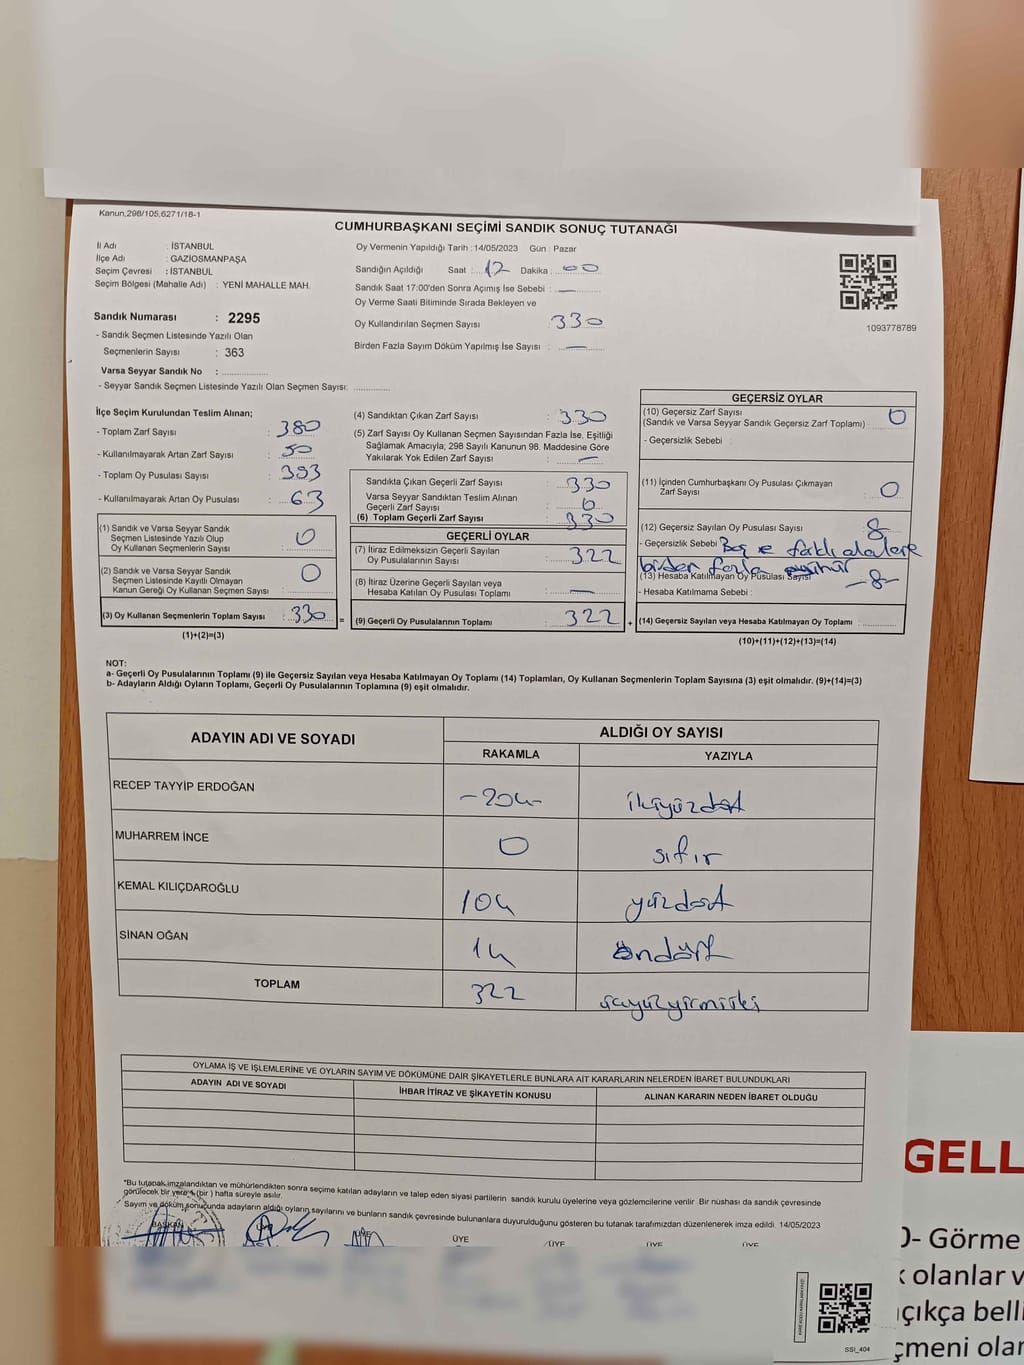 Kanun,298/105,6271/18-1
CUMHURBAŞKANI SEÇİMİ SANDIK SONUÇ TUTANAĞI
İl Adı : İSTANBUL
İlçe Adı : GAZİOSMANPAŞA
Seçim Çevresi : İSTANBUL
Seçim Bölgesi (Mahalle Adı) : YENİ MAHALLE MAH.
Sandık Numarası : 2295
- Sandık Seçmen Listesinde Yazılı Olan
Seçmenlerin Sayısı : 363
Varsa Seyyar Sandık No :
- Seyyar Sandık Seçmen Listesinde Yazılı Olan Seçmen Sayısı:
Oy Vermenin Yapıldığı Tarih : 14/05/2023 Gün : Pazar
Sandığın Açıldığı Saat : 12 Dakika : 00
Sandık Saat 17:00'den Sonra Açımış İse Sebebi : —
Oy Verme Saati Bitiminde Sırada Bekleyen ve
Oy Kullandırılan Seçmen Sayısı : 330
Birden Fazla Sayım Döküm Yapılmış İse Sayısı : —
1093778789
İlçe Seçim Kurulundan Teslim Alınan;
- Toplam Zarf Sayısı : 380
- Kullanılmayarak Artan Zarf Sayısı : 50
- Toplam Oy Pusulası Sayısı : 393
- Kullanılmayarak Artan Oy Pusulası : 63
(1) Sandık ve Varsa Seyyar Sandık
Seçmen Listesinde Yazılı Olup
Oy Kullanan Seçmenlerin Sayısı : 0
(2) Sandık ve Varsa Seyyar Sandık
Seçmen Listesinde Kayıtlı Olmayan
Kanun Gereği Oy Kullanan Seçmen Sayısı : 0
(3) Oy Kullanan Seçmenlerin Toplam Sayısı : 330
(1)+(2)=(3)
(4) Sandıktan Çıkan Zarf Sayısı : 330
(5) Zarf Sayısı Oy Kullanan Seçmen Sayısından Fazla İse, Eşitliği
Sağlamak Amacıyla; 298 Sayılı Kanunun 98. Maddesine Göre
Yakılarak Yok Edilen Zarf Sayısı : —
Sandıkta Çıkan Geçerli Zarf Sayısı : 330
Varsa Seyyar Sandıktan Teslim Alınan
Geçerli Zarf Sayısı : 0
(6) Toplam Geçerli Zarf Sayısı : 330
GEÇERLİ OYLAR
(7) İtiraz Edilmeksizin Geçerli Sayılan
Oy Pusulalarının Sayısı : 322
(8) İtiraz Üzerine Geçerli Sayılan veya
Hesaba Katılan Oy Pusulası Toplamı : —
= (9) Geçerli Oy Pusulalarının Toplamı : 322 +
GEÇERSİZ OYLAR
(10) Geçersiz Zarf Sayısı
(Sandık ve Varsa Seyyar Sandık Geçersiz Zarf Toplamı) : 0
- Geçersizlik Sebebi :
(11) İçinden Cumhurbaşkanı Oy Pusulası Çıkmayan
Zarf Sayısı : 0
(12) Geçersiz Sayılan Oy Pusulası Sayısı : 8
- Geçersizlik Sebebi : Boş ve farklı alalere
birden fazla mühür
(13) Hesaba Katılmayan Oy Pusulası Sayısı -8-
- Hesaba Katılmama Sebebi :
(14) Geçersiz Sayılan veya Hesaba Katılmayan Oy Toplamı :
(10)+(11)+(12)+(13)=(14)
NOT:
a- Geçerli Oy Pusulalarının Toplamı (9) ile Geçersiz Sayılan veya Hesaba Katılmayan Oy Toplamı (14) Toplamları, Oy Kullanan Seçmenlerin Toplam Sayısına (3) eşit olmalıdır. (9)+(14)=(3)
b- Adayların Aldığı Oyların Toplamı, Geçerli Oy Pusulalarının Toplamına (9) eşit olmalıdır.
ADAYIN ADI VE SOYADI ALDIĞI OY SAYISI
RAKAMLA YAZIYLA
RECEP TAYYİP ERDOĞAN -204- ikiyüzdört
MUHARREM İNCE 0 sıfır
KEMAL KILIÇDAROĞLU 104 yüzdört
SİNAN OĞAN 14 öndört
TOPLAM 322 üçyüzyirmiiki
OYLAMA İŞ VE İŞLEMLERİNE VE OYLARIN SAYIM VE DÖKÜMÜNE DAİR ŞİKAYETLERLE BUNLARA AİT KARARLARIN NELERDEN İBARET BULUNDUKLARI
ADAYIN ADI VE SOYADI İHBAR İTİRAZ VE ŞİKAYETİN KONUSU ALINAN KARARIN NEDEN İBARET OLDUĞU
*Bu tutanak imzalandıktan ve mühürlendikten sonra seçime katılan adayların ve talep eden siyasi partilerin sandık kurulu üyelerine veya gözlemcilerine verilir. Bir nüshası da sandık çevresinde
görülecek bir yere 1 (bir) hafta süreyle asılır.
Sayım ve döküm sonucunda adayların aldığı oyların sayılarını ve bunların sandık çevresinde bulunanlara duyurulduğunu gösteren bu tutanak tarafımızdan düzenlenerek imza edildi. 14/05/2023
BAŞKAN ÜYE ÜYE ÜYE ÜYE ÜYE
SSI_404
GELL
- Görme
olanlar v
açıkça belli
çmeni olar